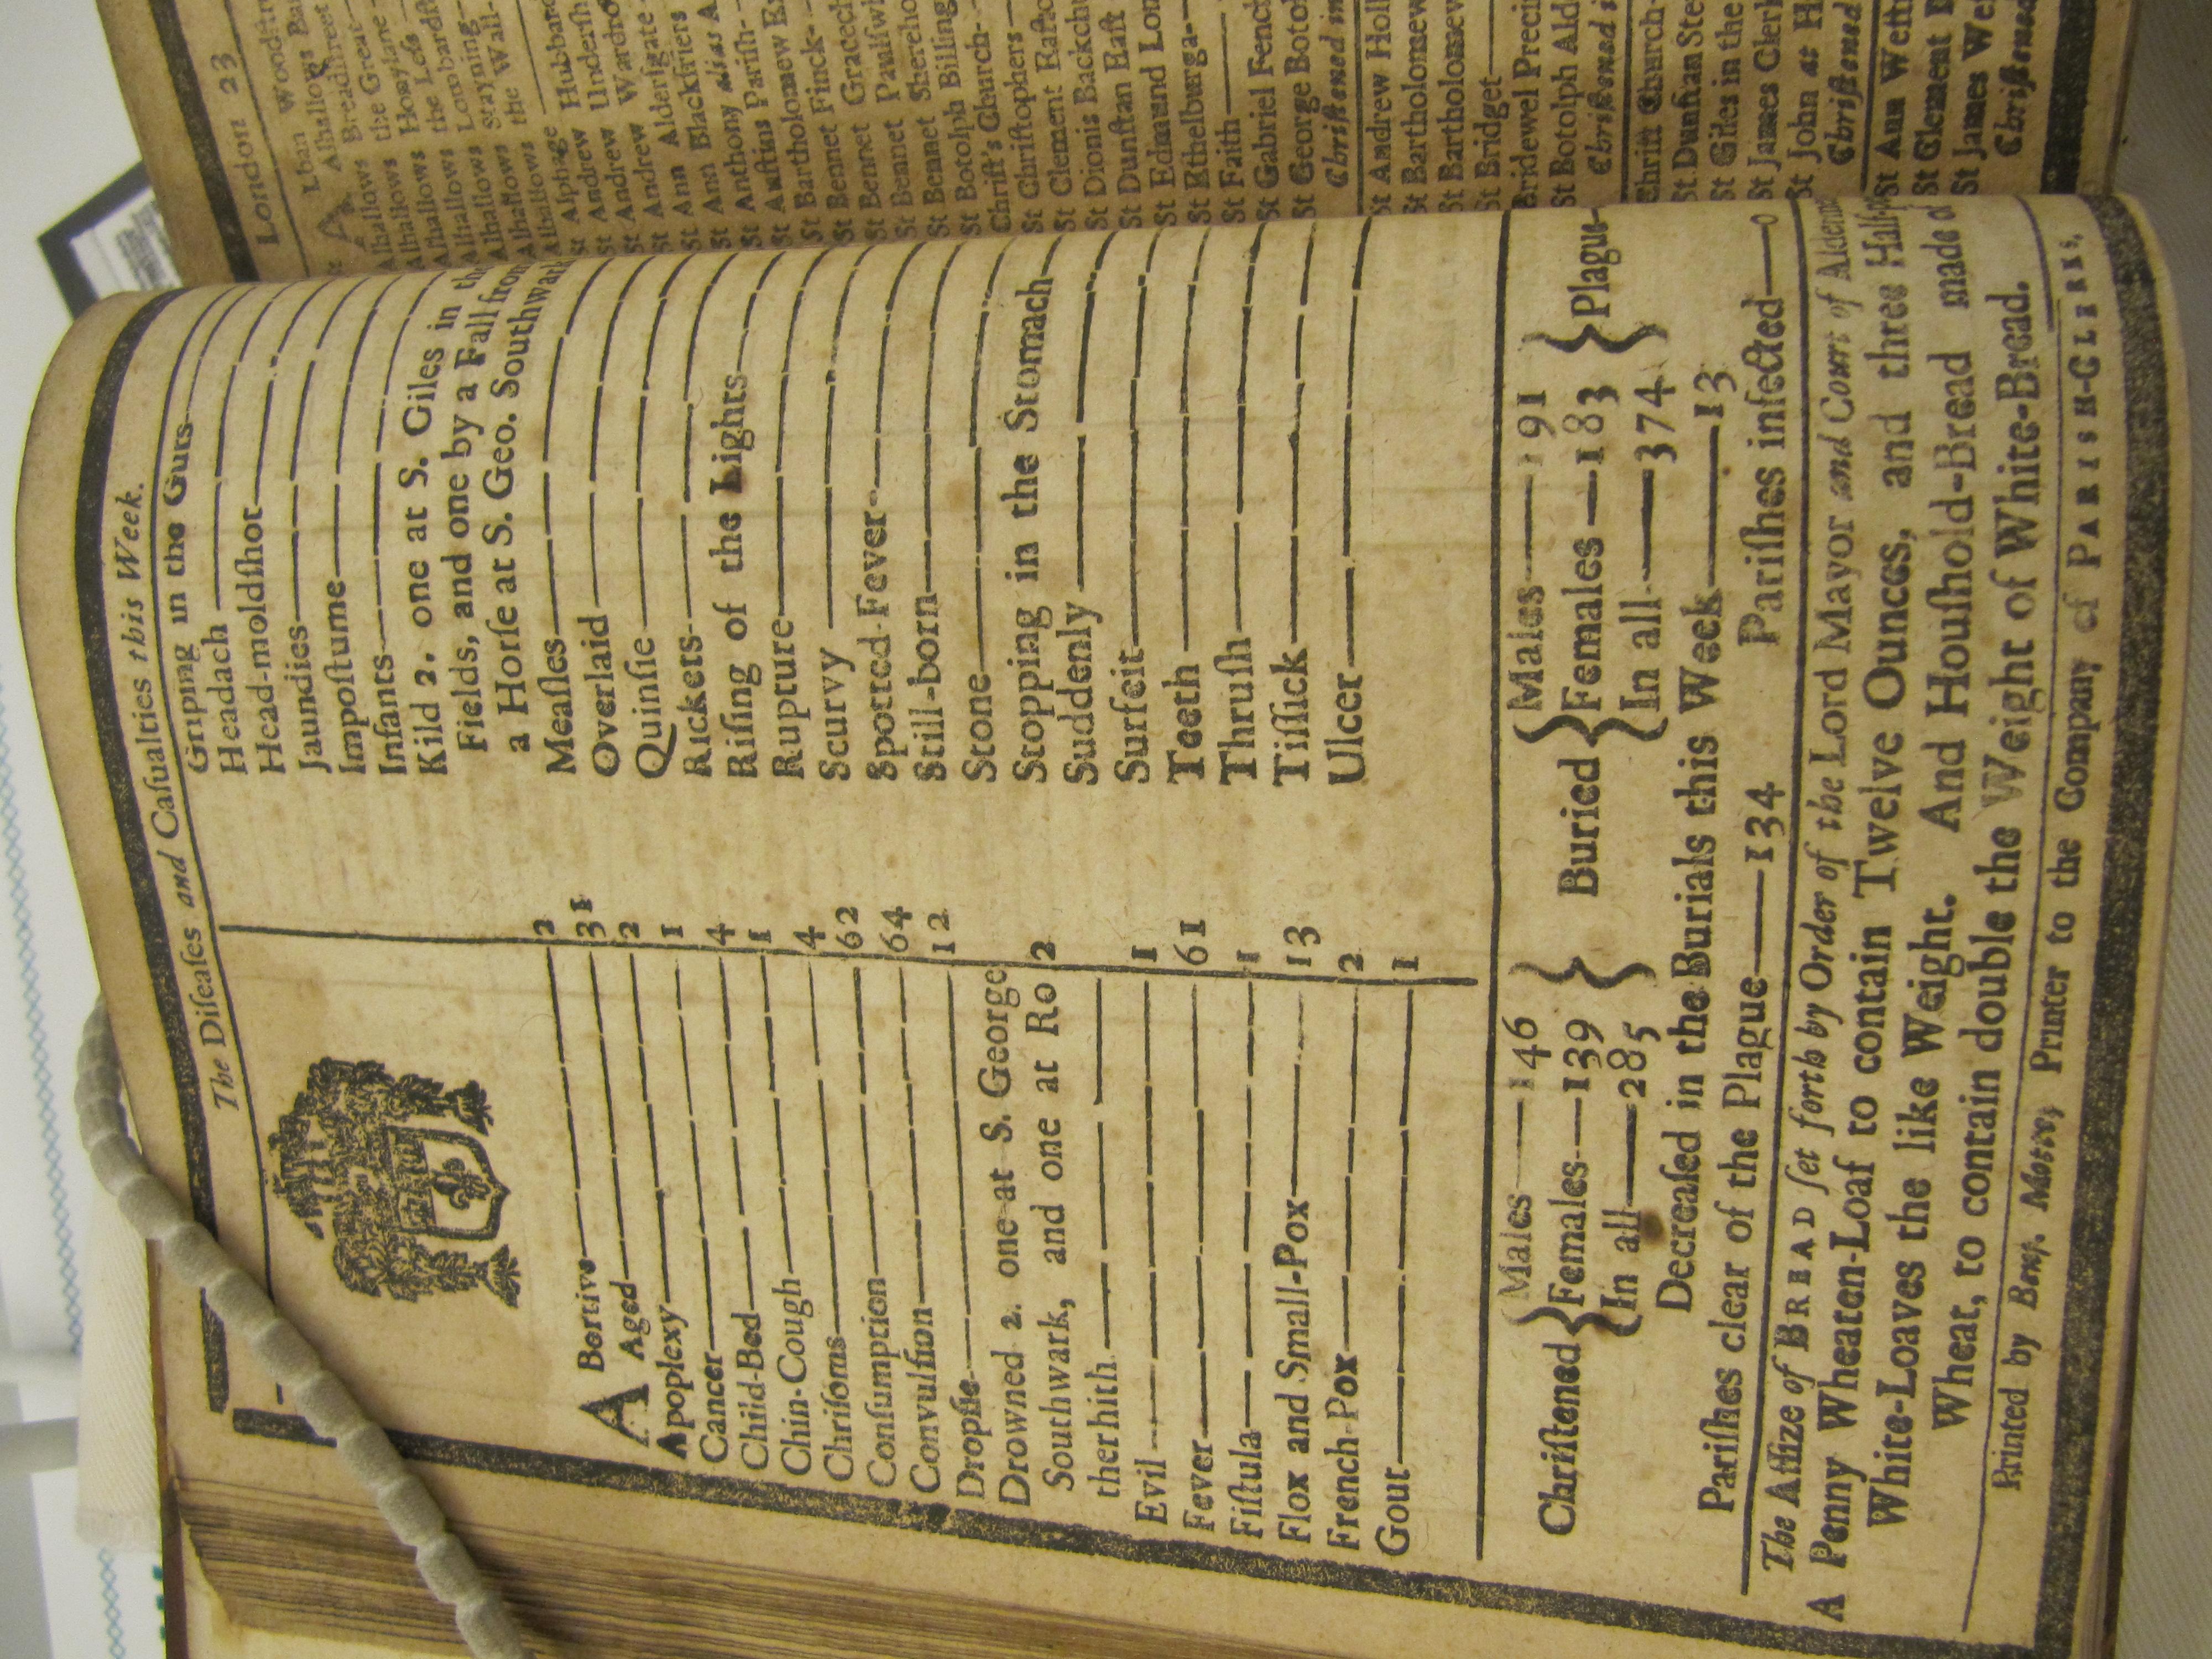 The Diſeaſes and Caſualties this Week.
ABortive 2
Aged 31
Apoplexy 2
Cancer 1
Child-Bed 4
Chin-Cough 1
Chriſoms 4
Conſumption 62
Convulſion 64
Dropſie 12
Drowned 2. one at S. George
Southwark, and one at Ro
therhith 2
Evil 1
Fever 61
Fiſtula 1
Flox and Small-Pox 13
French-Pox 2
Gout 1
Griping in the Guts
Headach
Head-moldſhot
Jaundies
Impoſtume
Infants
Kild 2. one at S. Giles in the
Fields, and one by a Fall from
a Horſe at S. Geo. Southwark
Meaſles
Overlaid
Quinſie
Rickets
Riſing of the Lights
Rupture
Scurvy
Spotted-Fever
Still-born
Stone
Stopping in the Stomach
Suddenly
Surfeit
Teeth
Thruſh
Tiſſick
Ulcer
Chriſtened { Males 146 Females 139 In all 285 } Buried { Males 191 Females 183 In all 374 } Plague
Decreaſed in the Burials this Week 13
Pariſhes clear of the Plague 134 Pariſhes infected 0
The Aſſize of BREAD ſet forth by Order of the Lord Mayor and Court of
A Penny Wheaten-Loaf to contain Twelve Ounces, and three
White-Loaves the like Weight. And Houſhold-Bread made
Wheat, to contain double the Weight of White-Bread.
Printed by Benj. Motte, Printer to the Company of PARISH-CLERKS.
London 23
St Alban
Alhallows
Alhallows Breadſtreet
Alhallows the Great
Alhallows Honylane
Alhallows the Leſs
Alhallows
Alhallows Stayning
Alhallows the Wall
St Alphage
St Andrew
St Andrew
St Andrew Wardro
St Ann Alderſgate
St Ann Blackfriers
St Anthony alias
St Auſtins Pariſh
St Bartholomew
St Bennet Finck
St Bennet Gracech
St Bennet Paulſw
St Bennet Shereho
St Botolph Billing
Chriſt's Church
St Chriſtophers
St Clement Eaſtc
St Dionis Backch
St Dunſtan Eaſt
St Edmund Lo
St Ethelburga
St Faith
St Gabriel Fench
St George Boto
Chriſtened in
St Andrew Hol
St Bartholomew
St Bartholomew
St Bridget
Bridewel Preci
St Botolph Ald
Chriſtened i
Chriſt Church
St Dunſtan
St Giles in the
St James Clerk
St John at H
Chriſtened
St Ann Weſt
St Clement D
St James We
Chriſtened